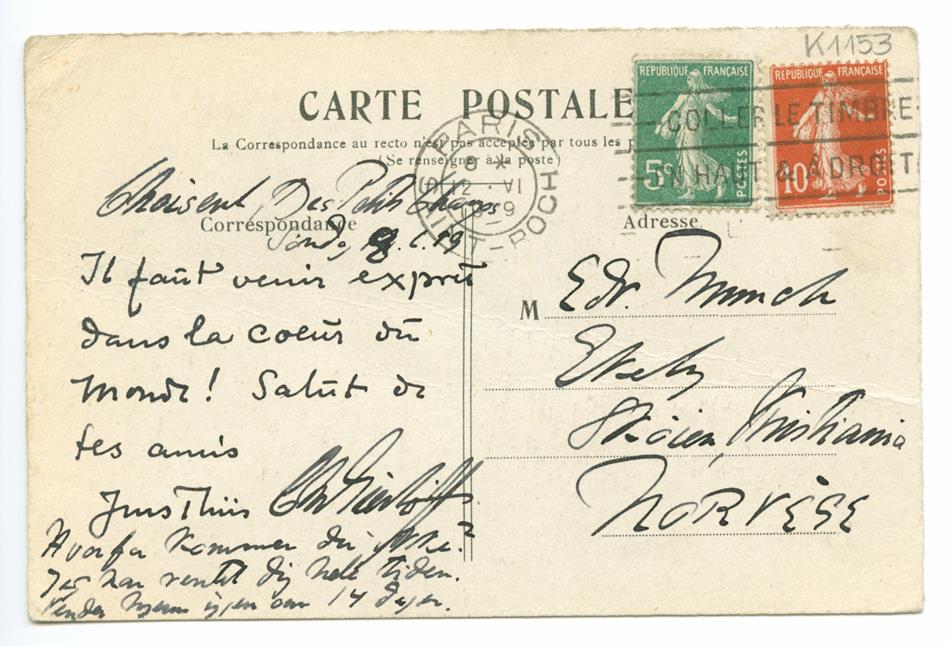 K1153
CARTE POSTALE
La Correspondance au recto n'est pas acceptée par tous les
(Se renseigner à la poste)
REPUBLIQUE FRANÇAISE
5c POSTES
REPUBLIQUE FRANÇAISE
10c POSTES
COLLER LE TIMBRE
EN HAUT & À DROITE
PARIS
8 *
12 - VI
ST-ROCH
Des Petits Champs
Correspondance
Adresse
Il faut venir exprès
dans la coeur du
Monde! Salut de
tes amis
Jens Thiis
Hvorfor kommer du ikke?
Jeg har ventet dig hele tiden.
igjen om 14 dager.
M Edv. Munch
Ekely
Skøien, Kristiania
NORVÈGE